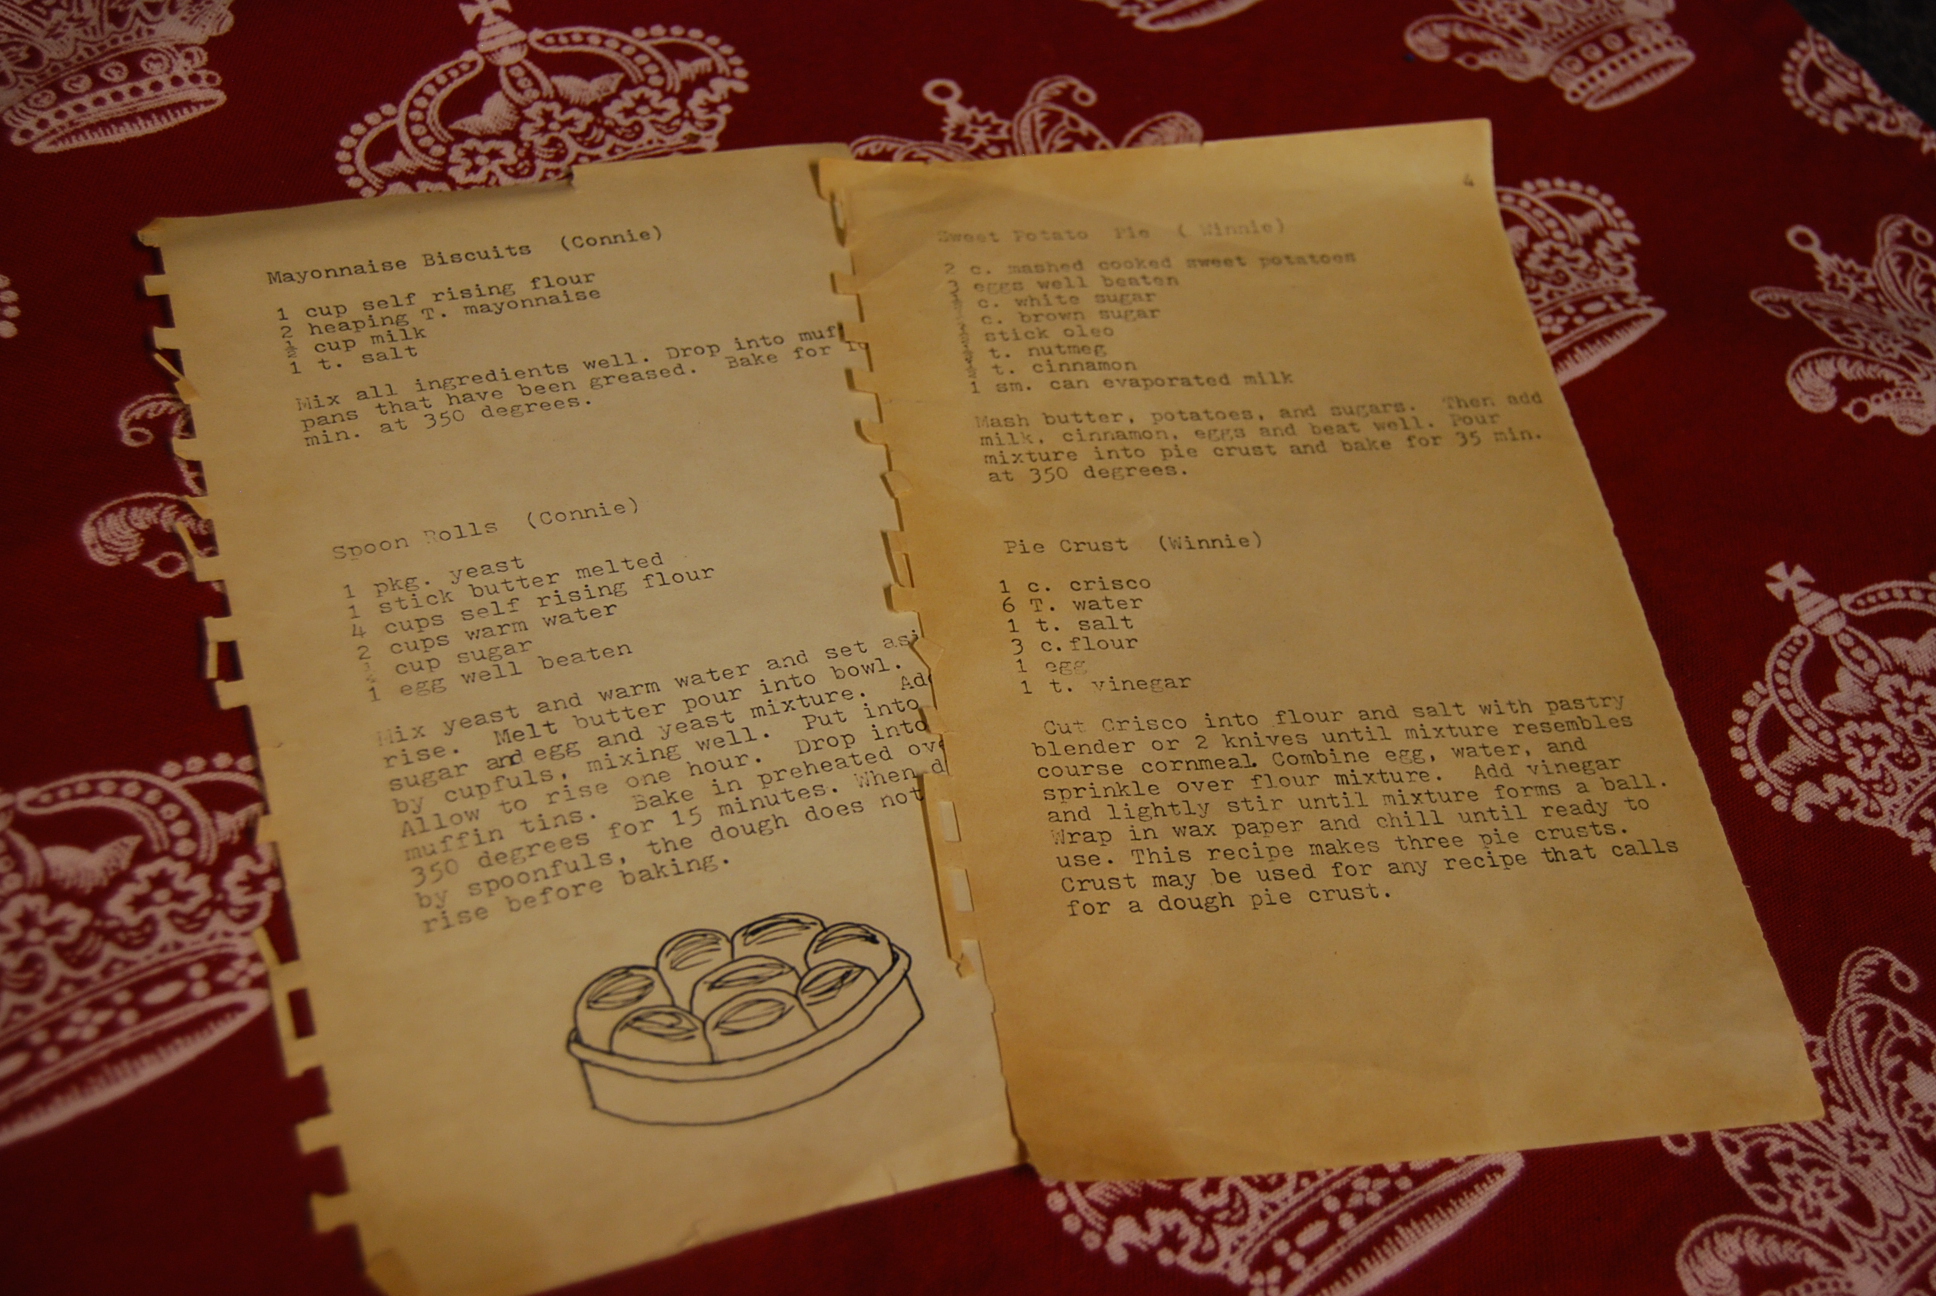 Mayonnaise Biscuits (Connie)
1 cup self rising flour
2 heaping T. mayonnaise
cup milk
1 t. salt
Mix all ingredients well. Drop into muf
pans that have been greased. Bake for
min. at 350 degrees.
Spoon Rolls (Connie)
1 pkg. yeast
1 stick butter melted
4 cups self rising flour
2 cups warm water
cup sugar
1 egg well beaten
Mix yeast and warm water and set asi
rise. Melt butter pour into bowl.
sugar and egg and yeast mixture. Add
by cupfuls, mixing well. Put into
Allow to rise one hour. Drop into
muffin tins. Bake in preheated ove
350 degrees for 15 minutes. When d
by spoonfuls, the dough does not
rise before baking.
4
Sweet Potato Pie (Winnie)
2 c. mashed cooked sweet potatoes
3 eggs well beaten
c. white sugar
c. brown sugar
stick oleo
t. nutmeg
t. cinnamon
1 sm. can evaporated milk
Mash butter, potatoes, and sugars. Then add
milk, cinnamon, eggs and beat well. Pour
mixture into pie crust and bake for 35 min.
at 350 degrees.
Pie Crust (Winnie)
1 c. crisco
6 T. water
1 t. salt
3 c.flour
1 egg
1 t. vinegar
Cut Crisco into flour and salt with pastry
blender or 2 knives until mixture resembles
course cornmeal. Combine egg, water, and
sprinkle over flour mixture. Add vinegar
and lightly stir until mixture forms a ball.
Wrap in wax paper and chill until ready to
use. This recipe makes three pie crusts.
Crust may be used for any recipe that calls
for a dough pie crust.